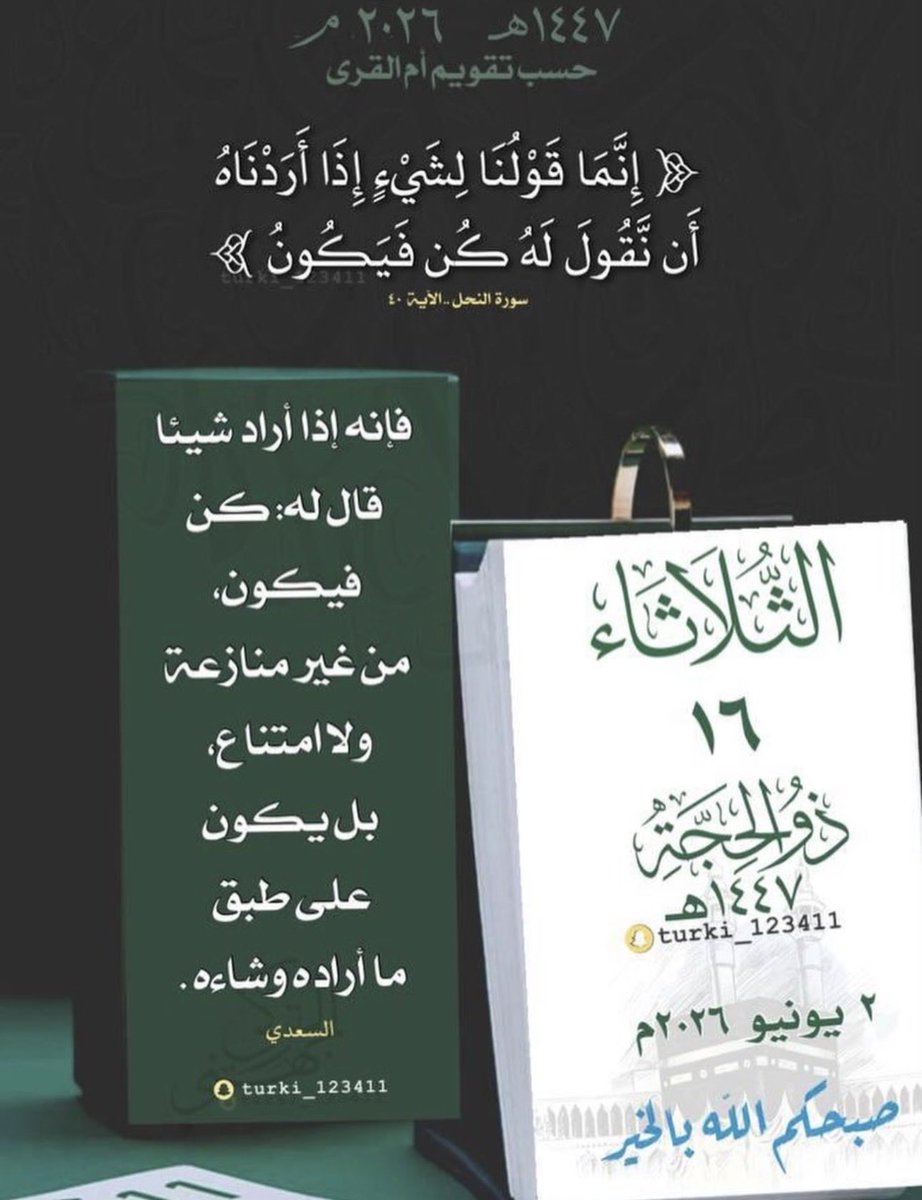 ١٤٤٧هـ ٢٠٢٦ م
حسب تقويم أم القرى
﴿ إِنَّمَا قَوْلُنَا لِشَيْءٍ إِذَا أَرَدْنَاهُ
أَن نَّقُولَ لَهُ كُن فَيَكُونُ ﴾
turki_123411
سورة النحل .. الآية ٤٠
فإنه إذا أراد شيئا
قال له: كن
فيكون،
من غير منازعة
ولا امتناع،
بل يكون
على طبق
ما أراده وشاءه.
السعدي
turki_123411
الثُّلَاثَاء
١٦
ذُو الحِجَّةِ
١٤٤٧هـ
turki_123411
٢ يونيو ٢٠٢٦م
صبحكم الله بالخير